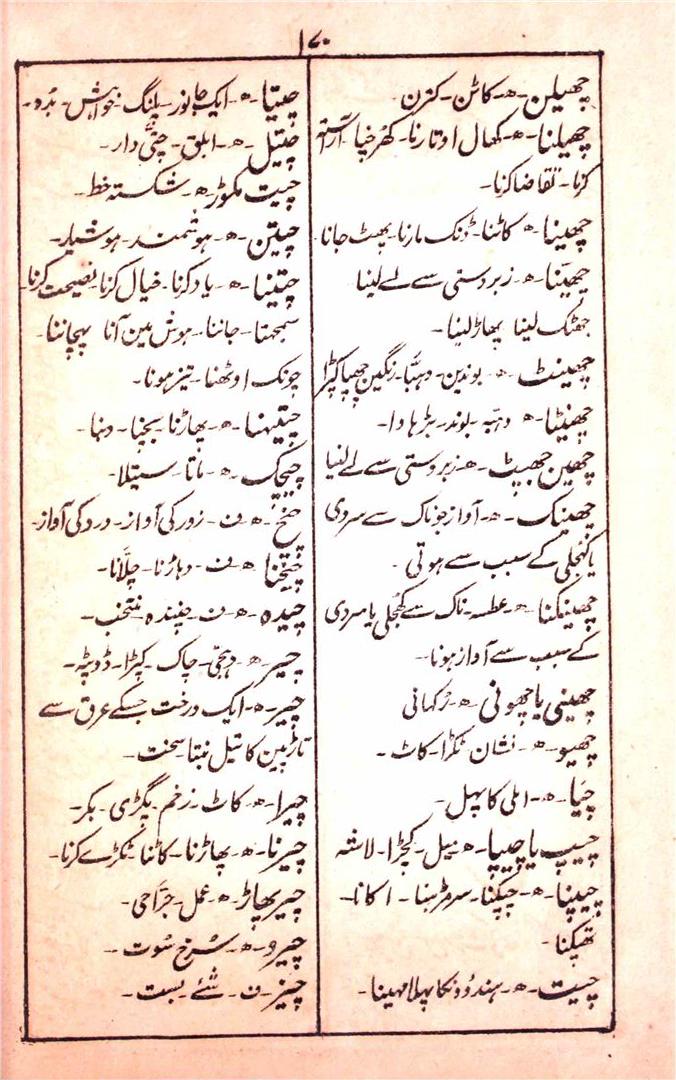 ۱۷۰
چھیلن۔ھ۔کاٹن۔کترن۔
چھیلنا۔ھ۔کھال اوتارنا۔کھرچنا۔آراستہ
کرنا۔تقاضا کرنا۔
چھینا۔ھ کاٹنا۔ڈنک مارنا۔پھٹ جانا۔
چھیننا۔ھ۔زبردستی سے لے لینا
جھٹک لینا پھاڑ لینا۔
چھینٹ۔ھ۔بوندین۔دہبّا۔رنگین چھپا کپڑا
چھینٹا۔ھ دہبّہ۔بوند۔بڑہاوا۔
چھین جھپٹ۔ھ۔زبردستی سے لے لینا
چھینک۔ھ۔آواز جو ناک سے سردی
یا کھجلی کے سبب سے ہوتی۔
چھینکنا۔ھ۔عطسہ۔ناک سے کھجلی یا سردی
کے سبب سے آواز ہونا۔
چھینی یا چھونی۔ھ۔رُکھانی
چھیو۔ھ۔نشان ٹکڑا۔کاٹ۔
چِیّا۔ھ۔املی کا پہل۔
چیپ یا چیپا۔ھ۔میل۔کچڑا۔لاسّہ
چیپنا۔ھ۔چپکنا۔سر مڑہنا۔
تھپکنا۔
چیت۔ھ۔ہندوونکا پہلا مہینا۔
چیتا۔ھ۔ایک جانور۔پلنگ۔خواہش۔بُدہ۔
چیتل۔ھ۔ابلق۔چتّی دار۔
چیت مکوڑ۔ھ۔شکستہ خط۔
چیتن۔ھ۔ہوشمند۔ہوشیار۔
چیتنا۔ھ۔یاد کرنا۔خیال کرنا۔نصیحت کرنا۔
سمجھنا۔جاننا۔ہوش مین آنا پہچاننا۔
چونک اوٹھنا۔تیز ہونا۔
چیتھنا۔ھ۔پھاڑنا۔
چیچک۔ھ۔ماتا۔سیتلا۔
چیخ۔ھ۔ف۔زور کی آواز۔درد کی آواز۔
چیخنا ھ۔ف۔دہاڑنا۔چلّانا۔
چیدہ۔ھ۔ف۔چنیدہ منتخب۔
چیر۔ھ۔دہجّی۔چاک۔کپڑا۔ڈوپٹہ۔
چیر۔ھ۔ایک درخت جسکے عرق سے
تارپین کا تیل بنتا۔سخت۔
چیرا۔ھ۔کاٹ۔زخم۔پگڑی۔بکر۔
چیرنا۔ھ۔پھاڑنا۔کاٹنا۔ٹکڑے کرنا۔
چیر پھاڑ۔ھ۔عمل۔جرّاحی۔
چیرو۔ھ۔سُرخ سُوت۔
چیز۔ف۔شئے۔بست۔